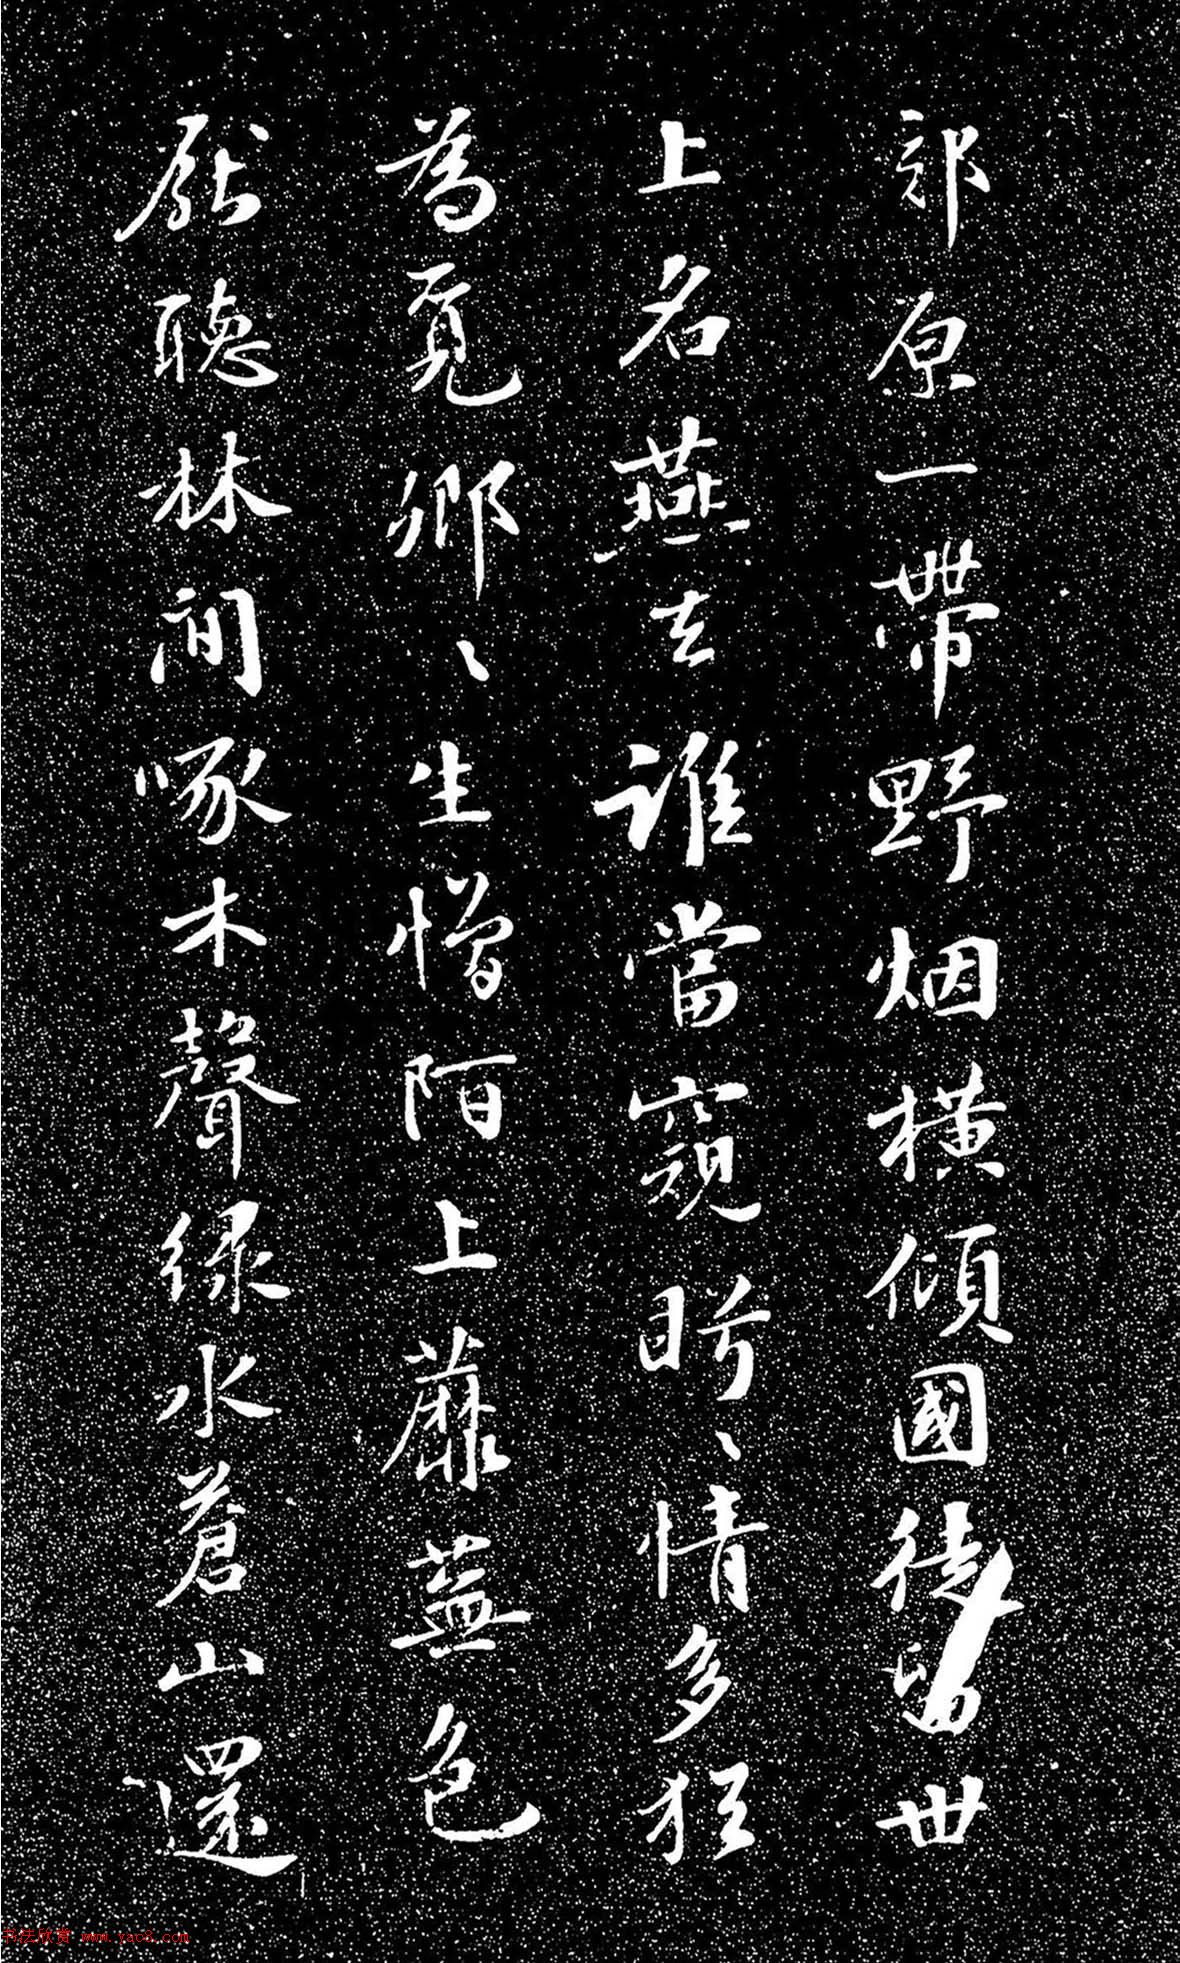 郊原一帶野烟橫傾國徒留世
上名燕去誰當窺盻〻情多狂
為覓卿〻生憎陌上蘼蕪色
厭聽林間啄木聲綠水蒼山還
书法欣赏 www.yac8.com